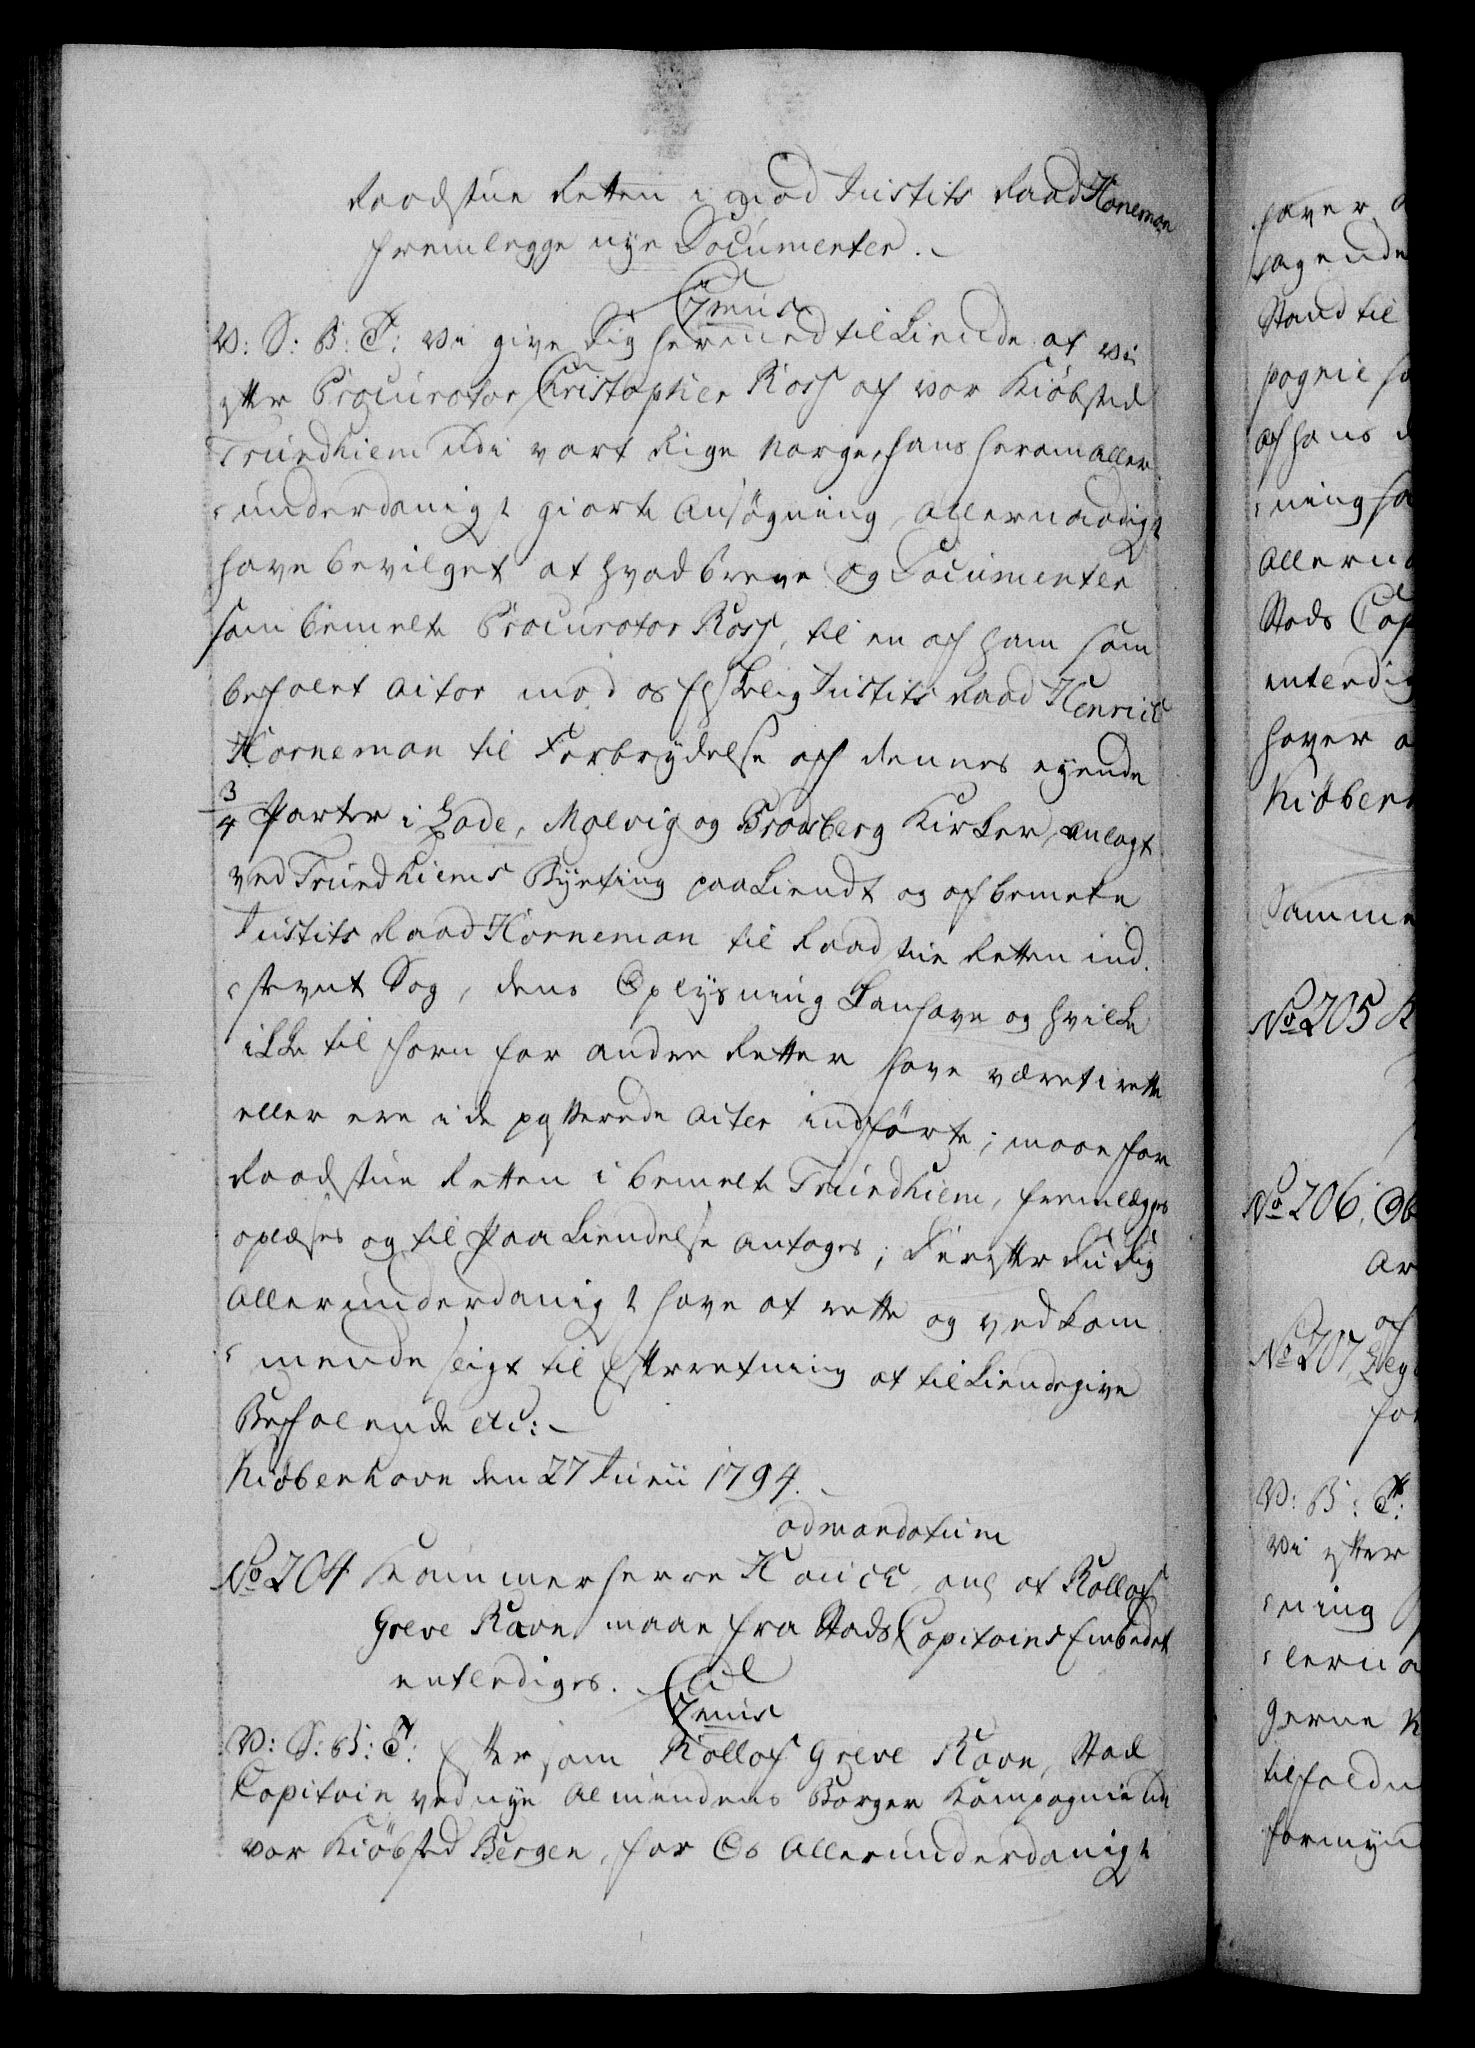 Raadstue Retten imod Justits Raad Horneman
fremlegge nye Documenter.
Gienus
V: S: B: T: Vi give Dig hermed tilkiende at vi
efter Procurator Christopher Ross af vor Kiøbsted
Trundhiem udi vort Rige Norge, hans herom aller-
underdanigst giorte Ansøgning, allernaadigst
have bevilget at hvad breve og Documenter
som bemelte Procurator Ross, til en af ham som
befalet Actor mod os Elskelig Justits Raad Henrich
Horneman til Forbrydelse af dennes eyende
3/4 Parter i Lade, Malvig og Bradsberg Kirker, anlagt
ved Trundhiems Byeting paakiendt og af bemelte
Justits Raad Horneman til Raadstue Retten ind-
stevnt Sag, dens Oplysning kan have og hvilke
ikke til forn for andre Retter have været i rette
eller ere i de passerede Acter indførte; maae for
Raadstue Retten i bemelte Trundhiem, fremlægges
oplæses og til Paakiendelse antages; Derefter du dig
allerunderdanigst have at rette og vedkom-
mende sligt til Efterretning at tilkiendegive
Befalende etc:
Kiøbenhavn den 27 Junii 1794.
ad mandatum
No 204 Kammerherre Hauch, anl at Rollof
Greve Ravn maae fra Stads Capitains Embedet
entlediges.
Gienus
V: S: B: T: Eftersom Rollof Greve Ravn, Stads
Capitain ved nye Almindens Borger Kompagnie udi
vor Kiøbsted Bergen, for Os allerunderdanigst
haver a
sagende
Stand til
pagnie
af hans
ning ha
Allern
Stads Cap
entledig
haver a
Kiøbenh
Samme
No 205
No 206
No 207
V: B: T:
Vi efter
ning
lerna
gerne
tilfaldn
formynd